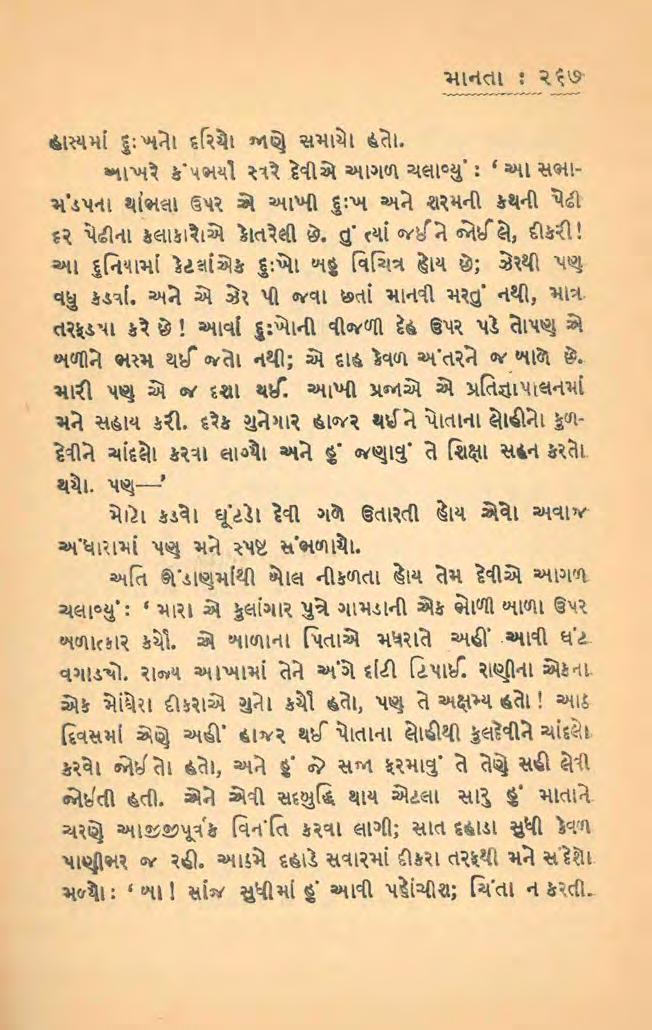 માનતા : ૨૬૭
હાસ્યમાં દુઃખનો દરિયો જાણે સમાયો હતો.
આખરે કંપભર્યા સ્વરે દેવીએ આગળ ચલાવ્યું : ‘ આ સભા-
મંડપના થાંભલા ઉપર એ આખી દુઃખ અને શરમની કથની પેઢી
દર પેઢીના કલાકારોએ કોતરેલી છે. તું ત્યાં જઈને જોઈ લે, દીકરી!
આ દુનિયામાં કેટલાંએક દુઃખો બહુ વિચિત્ર હોય છે; ઝેરથી પણ
વધુ કડવાં. અને એ ઝેર પી જવા છતાં માનવી મરતું નથી, માત્ર
તરફડ્યા કરે છે! આવાં દુઃખોની વીજળી દેહ ઉપર પડે તોપણ એ
બળીને ભસ્મ થઈ જતો નથી; એ દાહ કેવળ અંતરને જ બાળે છે.
મારી પણ એ જ દશા થઈ. આખી પ્રજાએ એ પ્રતિજ્ઞાપાલનમાં
મને સહાય કરી. દરેક ગુનેગાર હાજર થઈને પોતાના લોહીનો કુળ-
દેવીને ચાંદલો કરવા લાગ્યો અને હું જણાવું તે શિક્ષા સહન કરતો
થયો. પણ—’
મોટો કડવો ઘૂંટડો દેવી ગળે ઉતારતી હોય એવો અવાજ
અંધારામાં પણ મને સ્પષ્ટ સંભળાયો.
અતિ ઊંડાણમાંથી બોલ નીકળતા હોય તેમ દેવીએ આગળ
ચલાવ્યું : ‘ મારા એ કુલાંગાર પુત્રે ગામડાની એક ભોળી બાળા ઉપર
બળાત્કાર કર્યો. એ બાળાના પિતાએ મધરાતે અહીં આવી ઘંટ
વગાડ્યો. રાજ્ય આખામાં તેને અંગે દાંટી ટિપાઈ. રાણીના એકના
એક મોંઘેરા દીકરાએ ગુનો કર્યો હતો, પણ તે અક્ષમ્ય હતો! આઠ
દિવસમાં એણે અહીં હાજર થઈ પોતાના લોહીથી કુલદેવીને ચાંદલો
કરવો જોઈતો હતો, અને હું જે સજા ફરમાવું તે તેણે સહી લેવી
જોઈતી હતી. એને એવી સદબુદ્ધિ થાય એટલા સારુ હું માતાને
ચરણે આજીજીપૂર્વક વિનંતિ કરવા લાગી; સાત દહાડા સુધી કેવળ
પાણીભર જ રહી. આઠમે દહાડે સવારમાં દીકરા તરફથી મને સંદેશો
મળ્યો : ‘ બા! સાંજ સુધીમાં હું આવી પહોંચીશ; ચિંતા ન કરતી.